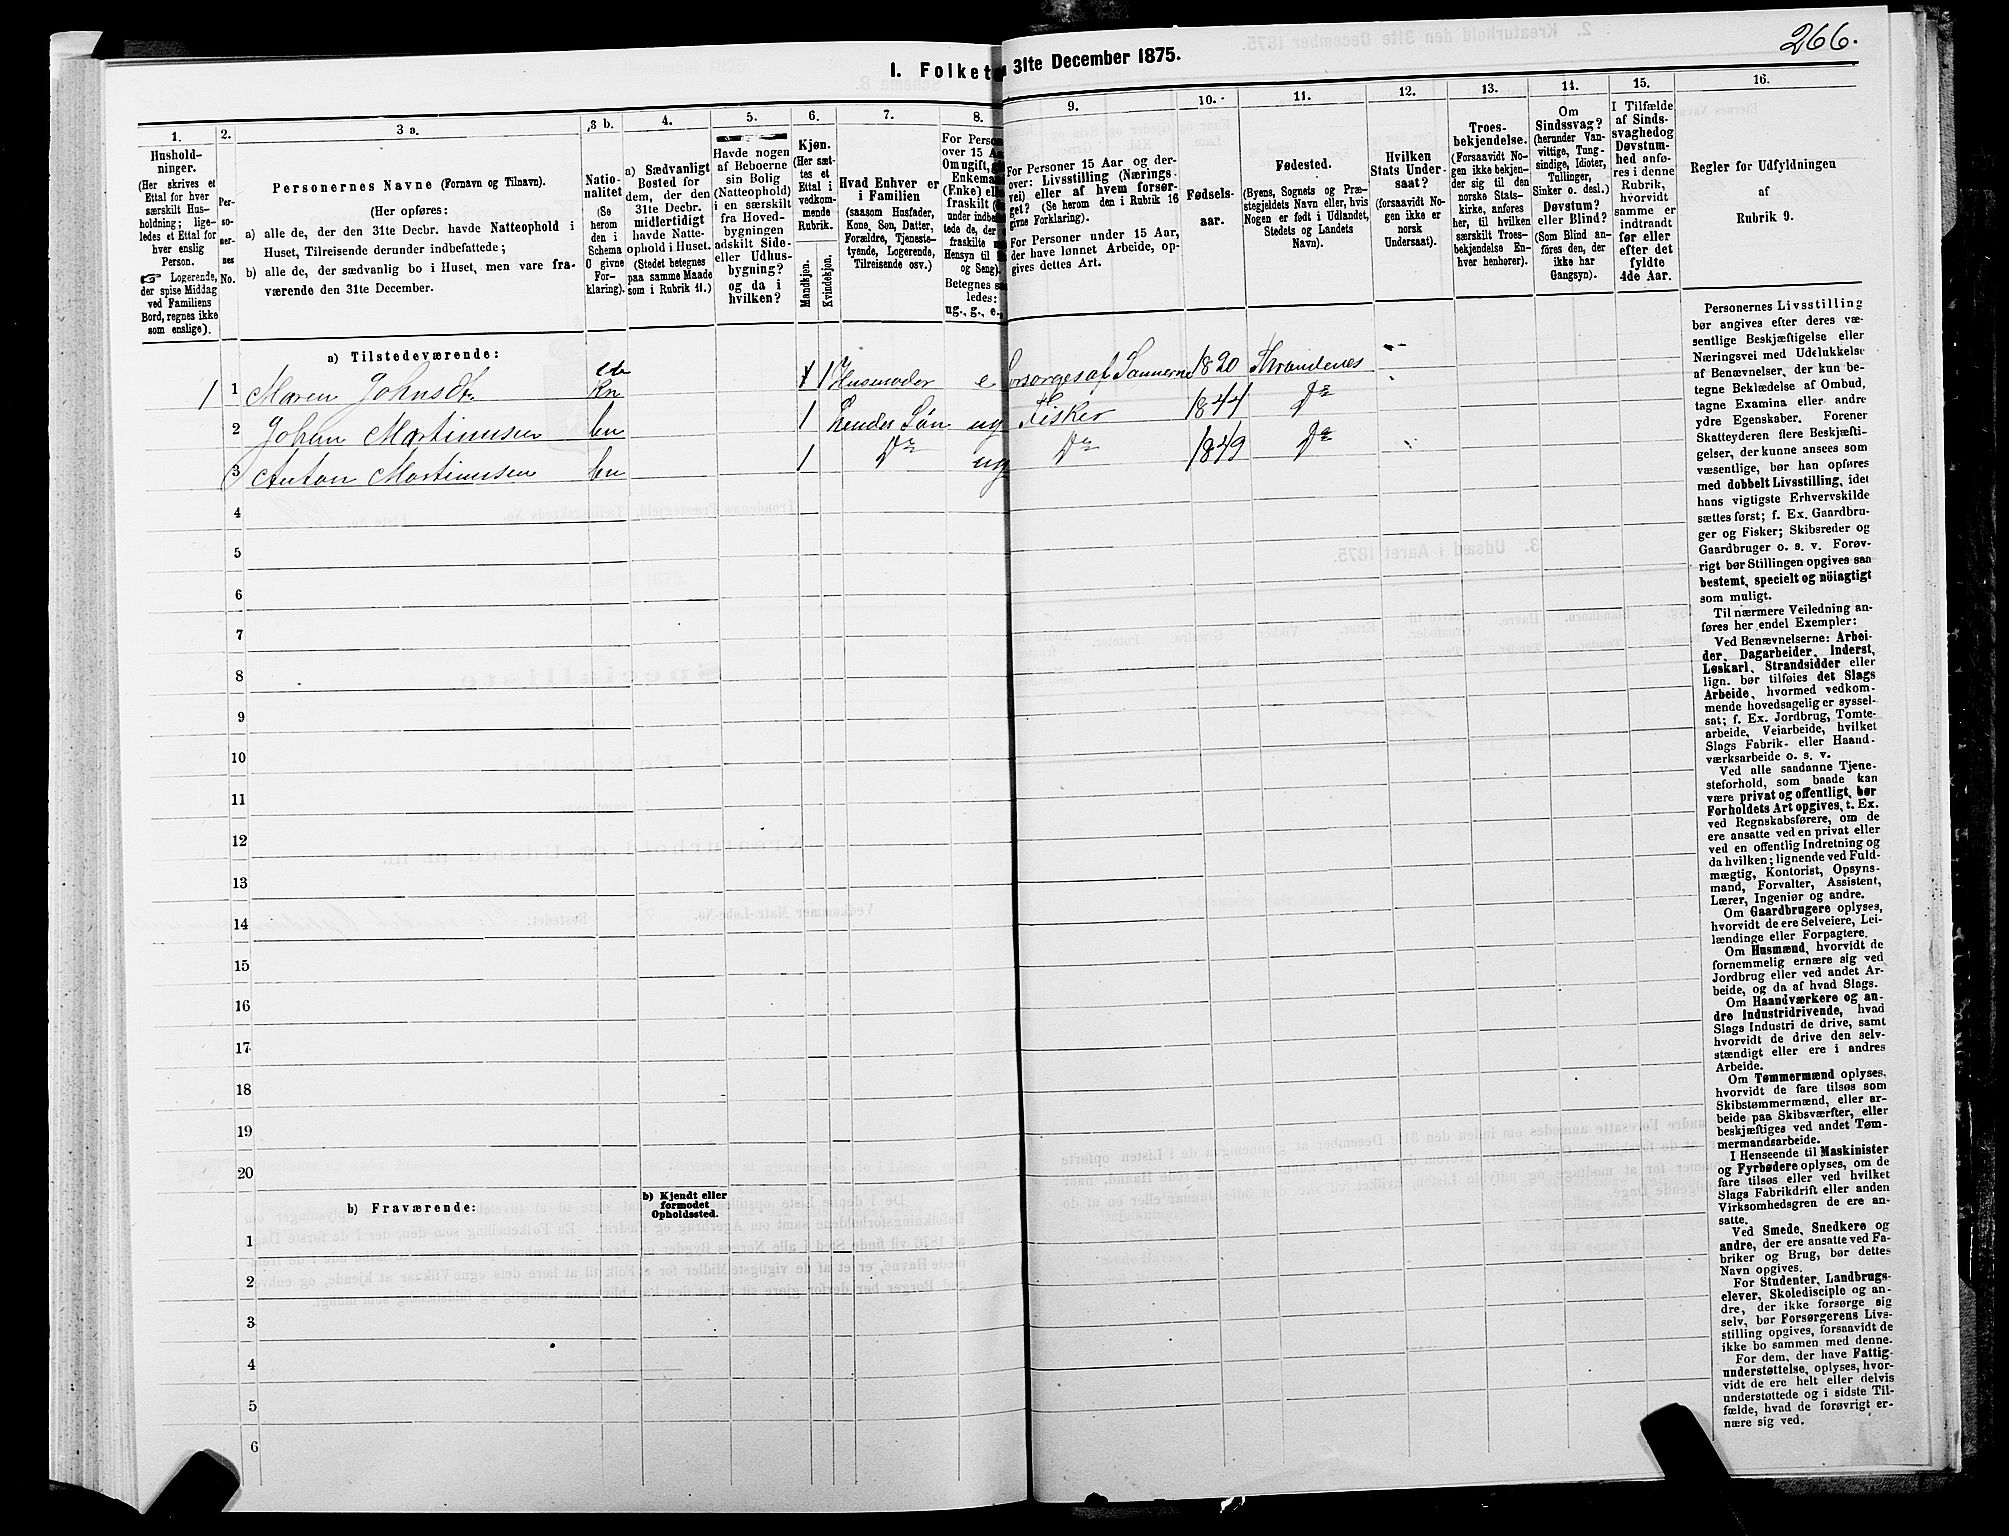 266.
I. Folket
31te December 1875.
1.
Hushold-
ninger.
(Her skrives et
Ettal for hver
særskilt Hus-
holdning; lige-
ledes et Ettal for
hver enslig
Person.
☞ Logerende,
der spise Middag
ved Familiens
Bord, regnes ikke
som enslige).
2.
Per-
so-
ner-
nes
No.
3 a.
Personernes Navne (Fornavn og Tilnavn).
(Her opføres:
a) alle de, der den 31te Decbr. havde Natteophold i
Huset, Tilreisende derunder indbefattede;
b) alle de, der sædvanlig bo i Huset, men vare fra-
værende den 31te December.
3 b.
Natio-
nalitet
(Se
herom
den i
Schema
O givne
For-
klaring).
4.
a) Sædvanligt
Bosted for
dem, der den
31te Decbr.
midlertidigt
havde Natte-
ophold i Huset.
(Stedet betegnes
paa samme Maade
som i Rubrik 11.)
5.
Havde nogen
af Beboerne
sin Bolig
(Natteophold)
i en særskilt
fra Hoved-
bygningen
adskilt Side-
eller Udhus-
bygning?
og da i
hvilken?
6.
Kjøn.
(Her sæt-
tes et
Ettal i
vedkom-
mende
Rubrik.
Mandkjøn.
Kvindekjøn.
7.
Hvad Enhver er
i Familien
(saasom Husfader,
Kone, Søn, Datter,
Forældre, Tjeneste-
tyende, Logerende,
Tilreisende osv.)
8.
For Person
over 15 A
Om ugift,
Enkema
(Enke) el
fraskilt (
under indbe
tede de, der
fraskilte
Hensyn til
og Seng).
Betegnes s
ledes:
ug., g., e.,
9.
For Personer 15 Aar og der-
over: Livsstilling (Nærings-
vei) eller af hvem forsør-
get? (Se herom den i Rubrik 16
givne Forklaring).
For Personer under 15 Aar,
der have lønnet Arbeide, op-
gives dettes Art.
10.
Fødsels-
aar.
11.
Fødested.
(Byens, Sognets og Præ-
stegjeldets Navn eller, hvis
Nogen er født i Udlandet,
Stedets og Landets
Navn).
12.
Hvilken
Stats Under-
saat?
(forsaavidt No-
gen ikke er
norsk
Undersaat).
13.
Troes-
bekjendelse.
(Forsaavidt No-
gen ikke bekjen-
der sig til den
norske Stats-
kirke, anføres
her, til hvilken
særskilt Troes-
bekjendelse En-
hver henhører).
14.
Om
Sindssvag?
(herunder Van-
vittige, Tung-
sindige, Idioter,
Tullinger,
Sinker o. desl.)
Døvstum?
eller Blind?
(Som Blind an-
føres den, der
ikke har
Gangsyn).
15.
I Tilfælde
af Sinds-
svaghed og
Døvstum-
hed anfø-
res i denne
Rubrik,
hvorvidt
samme er
indtrandt
før eller
efter det
fyldte
4de Aar.
16.
Regler for Udfyldningen
af
Rubrik 9.
a) Tilstedeværende:
1 1 Maren Johnsdt. Kn 1 Husmoder e Forsørges af Sønnerne 1820 Thrandenes
2 Johan Martinusen bn 1 hendes Søn ug Fisker 1844 Do
3 Anton Martinusen bn 1 Do ug Do 1849 Do
4
5
6
7
8
9
10
11
12
13
14
15
16
17
18
19
20
b) Fraværende:
b) Kjendt eller
formodet
Opholdssted.
1
2
3
4
5
6
Personernes Livsstilling
bør angives efter deres væ-
sentlige Beskjæftigelse eller
Næringsvei med Udelukkelse
af Benævnelser, der kun be-
tegne Beklædelse af Ombud,
tagne Examina eller andre
ydre Egenskaber. Forener
Skatteyderen flere Beskjæfti-
gelser, der kunne ansees som
væsentlige, bør han opføres
med dobbelt Livsstilling, idet
hans vigtigste Erhvervskilde
sættes først; f. Ex. Gaardbru-
ger og Fisker; Skibsreder og
Gaardbruger o. s. v. Forøv-
rigt bør Stillingen opgives saa
bestemt, specielt og nöiagtigt
som muligt.
Til nærmere Veiledning an-
føres her endel Exempler:
Ved Benævnelserne: Arbei-
der, Dagarbeider, Inderst,
Løskarl, Strandsidder eller
lign. bør tilføies det Slags
Arbeide, hvormed vedkom-
mende hovedsagelig er syssel-
sat; f. Ex. Jordbrug, Tomte-
arbeide, Veiarbeide, hvilket
Slags Fabrik- eller Haand-
værksarbeide o. s. v.
Ved alle saadanne Tjene-
steforhold, som baade kan
være privat og offentligt, bør
Forholdets Art opgives, t. Ex.
ved Regnskabsførere, om de
ere ansatte ved en privat eller
ved en offentlig Indretning og
da hvilken; lignende ved Fuld-
mægtig, Kontorist, Opsyns-
mand, Forvalter, Assistent,
Lærer, Ingeniør og andre.
Om Gaardbrugere oplyses,
hvorvidt de ere Selveiere, Lei-
lændinge eller Forpagtere.
Om Husmænd, hvorvidt de
fornemmelig ernære sig ved
Jordbrug eller ved andet Ar-
beide, og da af hvad Slags.
Om Haandværkere og an-
dre Industridrivende, hvad
Slags Industri de drive, samt
hvorvidt de drive den selv-
stændigt eller ere i andres
Arbeide.
Om Tømmermænd oplyses,
hvorvidt de fare tilsøs som
Skibstømmermænd, eller ar-
beide paa Skibsværfter, eller
beskjæftiges ved andet Tøm-
mermandsarbeide.
I Henseende til Maskinister
og Fyrbødere oplyses, om de
fare tilsøs eller ved hvilket
Slags Fabrikdrift eller anden
Virksomhedsgren de ere an-
satte.
Ved Smede, Snedkere og
andre, der ere ansatte ved Fa-
briker og Brug, bør dettes
Navn opgives.
For Studenter, Landbrugs-
elever, Skoledisciple og an-
dre, der ikke forsørge sig
selv, bør Forsørgerens Livs-
stilling opgives, forsaavidt de
ikke bo sammen med denne.
For dem, der have Fattig-
understøttelse, oplyses, hvor-
vidt de ere helt eller delvis
understøttede og i sidste Til-
fælde, hvad de forøvrigt er-
nære sig ved.